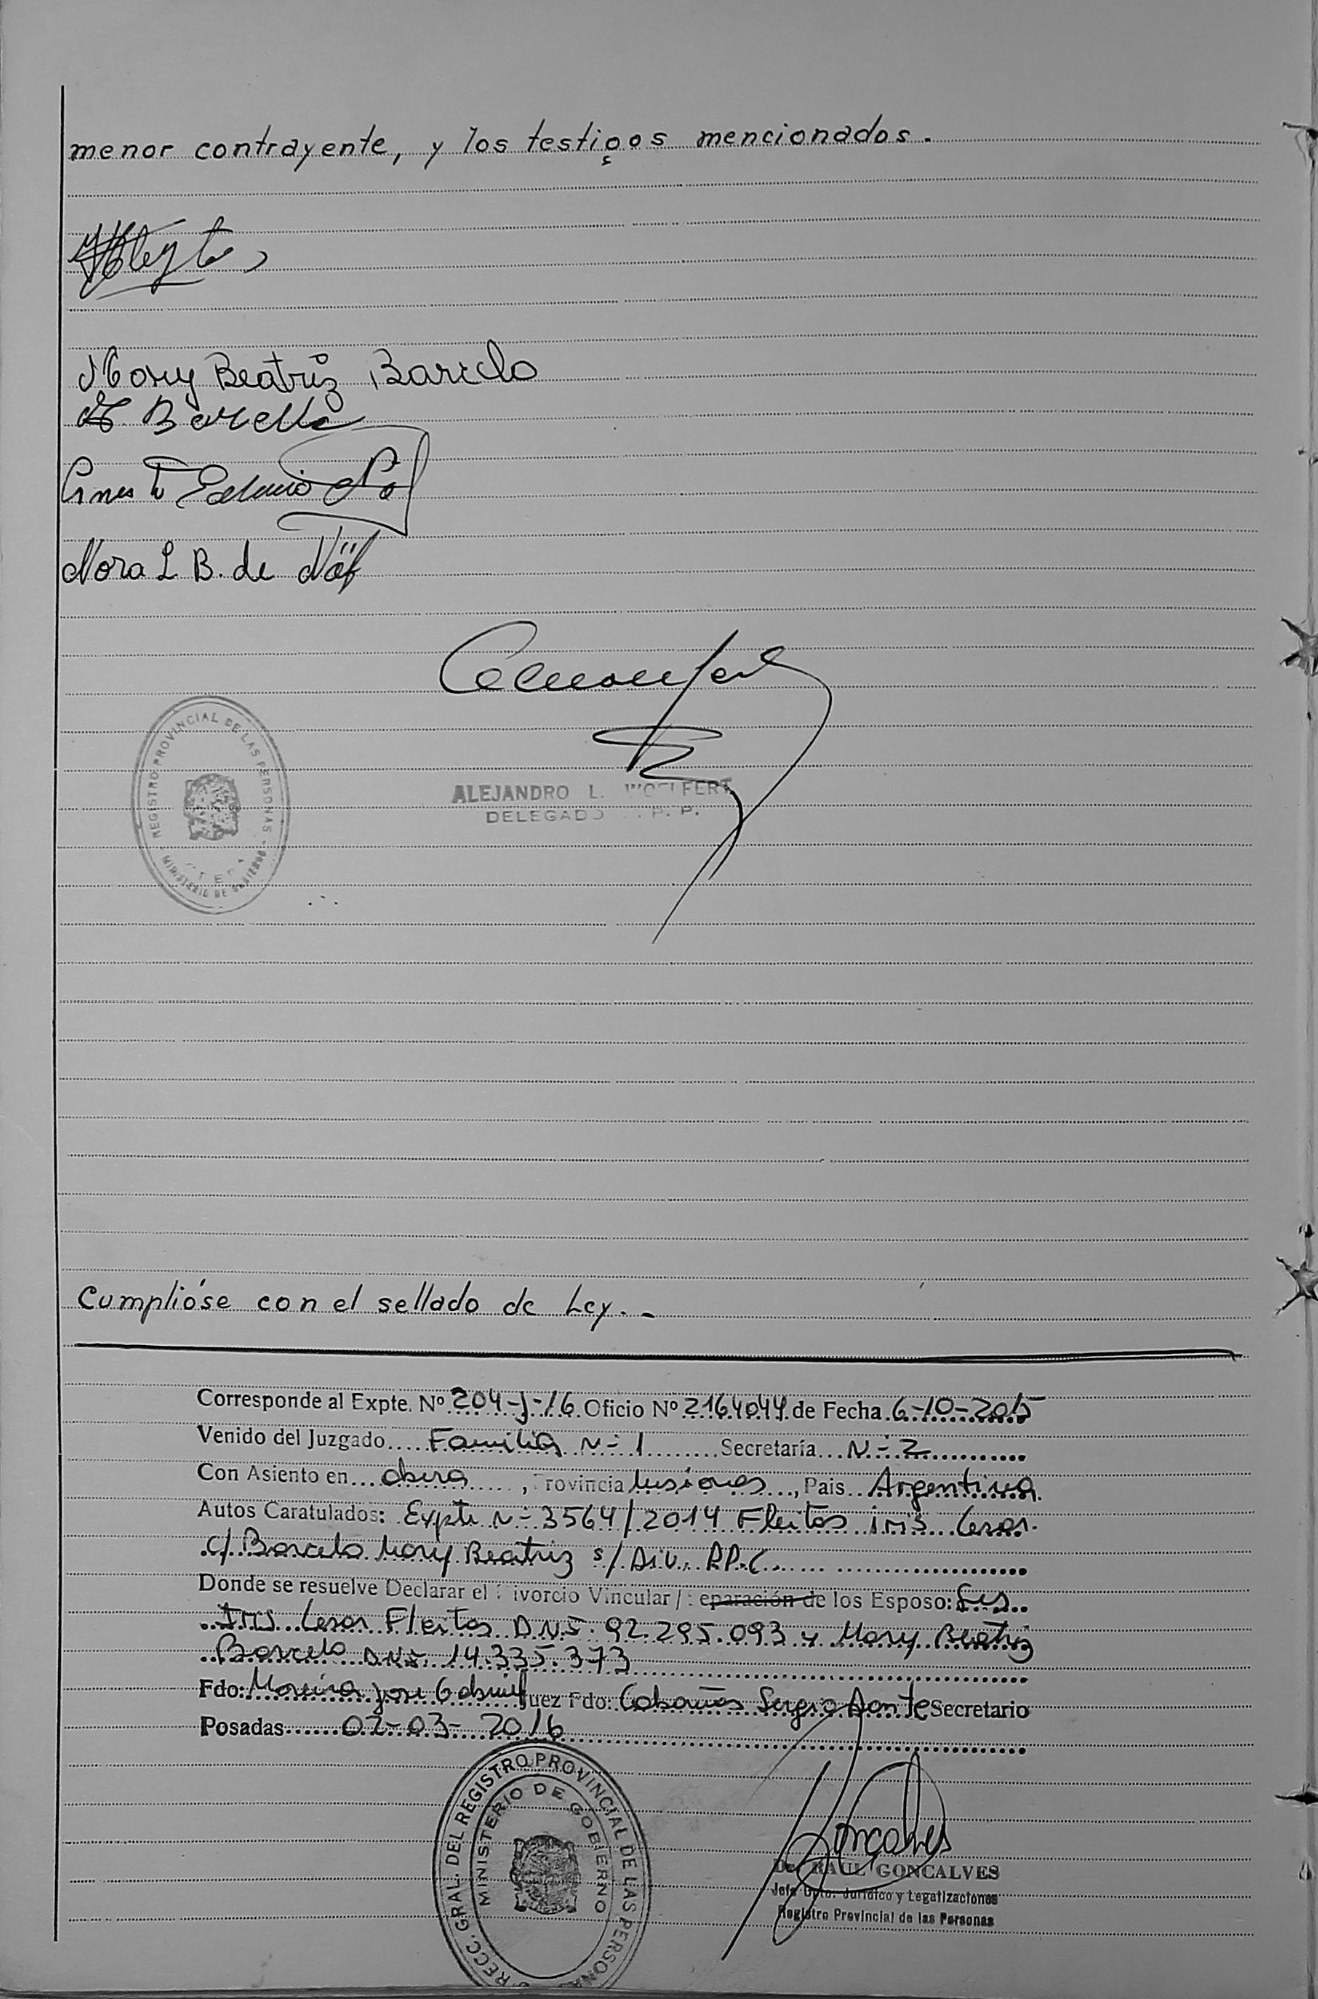 menor contrayente, y los testigos mencionados.
Mary Beatriz Barcelo
Nora L B. de Näf
REGISTRO PROVINCIAL DE LAS PERSONAS
MINISTERIO DE GOBIERNO
ALEJANDRO L. WOELFERT
DELEGADO P. P.
Cumplióse con el sellado de Ley. -
Corresponde al Expte. Nº 204-J-16 Oficio Nº 2164044 de Fecha 6-10-2015
Venido del Juzgado Familia Nº 1 Secretaría Nº 2
Con Asiento en Obera, Provincia Misiones, Pais Argentina
Autos Caratulados: Expte Nº 3564/2014 Fleitas Iris Cesar
c/ Barcelo Mary Beatriz s/ Div. PP.C.
Donde se resuelve Declarar el ivorcio Vincular / eparación de los Esposo: Sres
Iris Cesar Fleitas DNI: 92.295.093 y Mary Beatriz
Barcelo DNI. 14.335.373
Fdo: Moreira Jose Gabriel Juez Fdo: Cabañas Sergio Dante Secretario
Posadas 02-03-2016
RECC. GRAL. DEL REGISTRO PROVINCIAL DE LAS PERSONAS
MINISTERIO DE GOBIERNO
Goncalves
Dr. RAUL GONCALVES
Jefe Dpto. Jurídico y Legalizaciones
Registro Provincial de las Personas